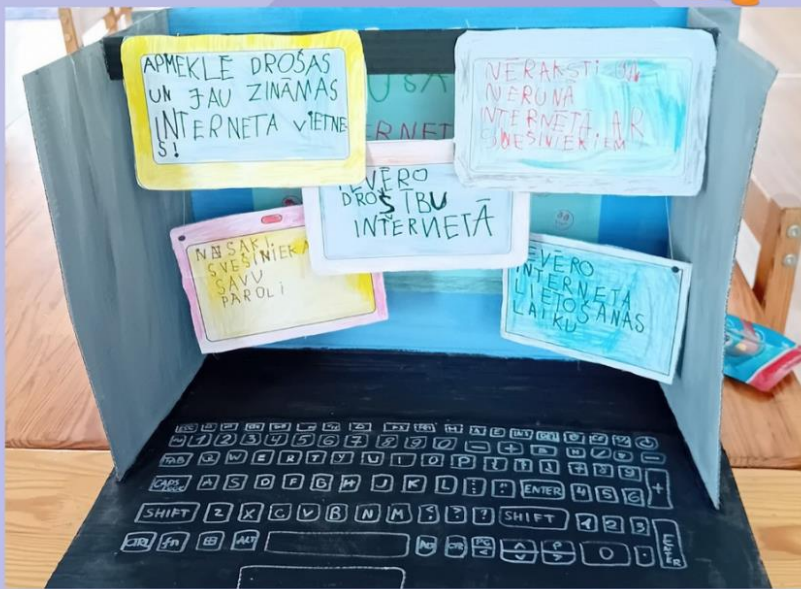 APMEKLĒ DROŠAS
UN JAU ZINĀMAS
INTERNETA VIETNE
S!
NĒRAKSTI UN
NERUNĀ
INTERNĒTĀ AR
SVEŠINIEKIEM
IEVĒRO
DROŠĪBU
INTERNETĀ
NESAKI
SVEŠINIEKA
SAVU
PAROLI
IEVĒRO
INTERNETA
LIETOŠANAS
LAIKU
ERNET
1 2 3 4 5 6 7 8 9 0 - +
TAB Q W E R T Y U I O P 7 8 9
CAPS LOCK A S D F G H J K L ENTER 4 5 6 +
SHIFT Z X C V B N M SHIFT 1 2 3 ENTER
CTRL fn ALT ALT CTR 0